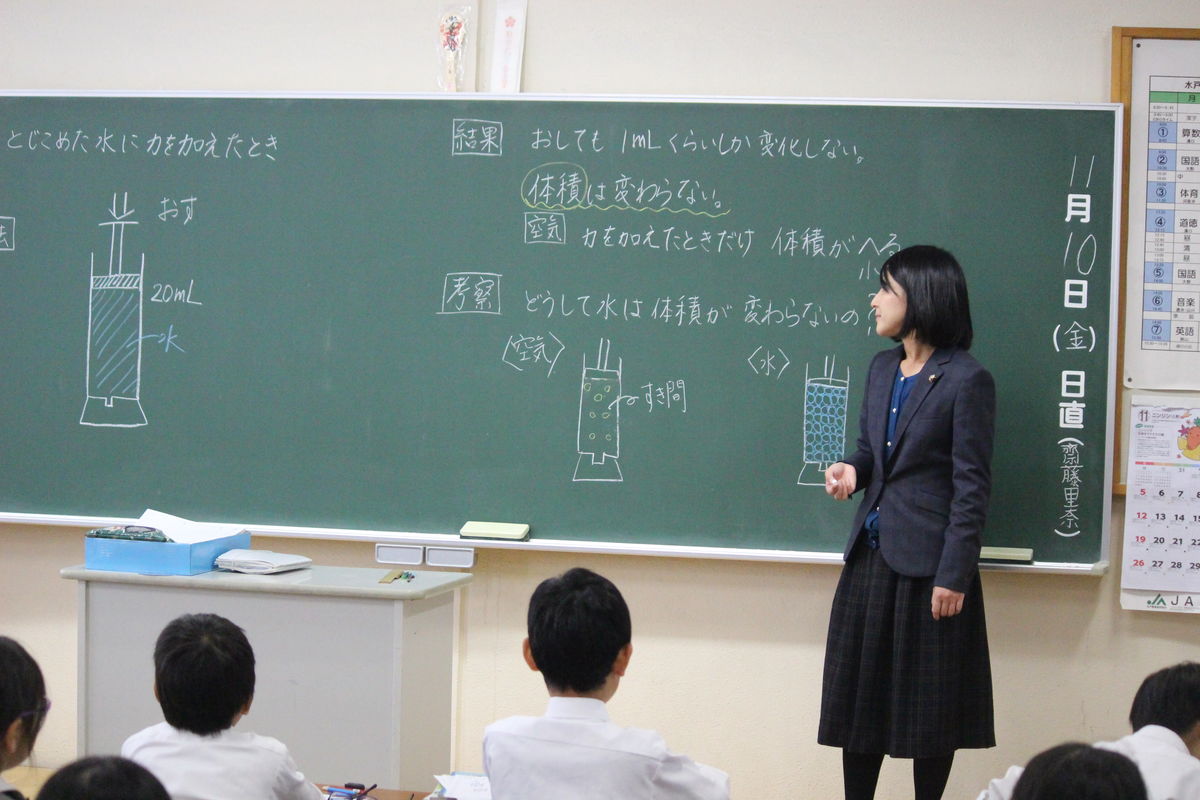 とじこめた水に力を加えたとき
おす
20mL
水
結果
おしても 1mLくらいしか変化しない。
体積は変わらない。
空気 力を加えたときだけ 体積がへる
小
考察 どうして水は体積が変わらないの?
〈空気〉
すき間
〈水〉
11月10日(金)日直(齋藤里奈)
水戸
月
① 算数
② 国語
③ 体育
④ 道徳
⑤ 国語
⑥ 音楽
⑦ 英語
11
ニンジン
5 6 7 8
12 13 14 15
19 20 21 22
26 27 28 29
JA